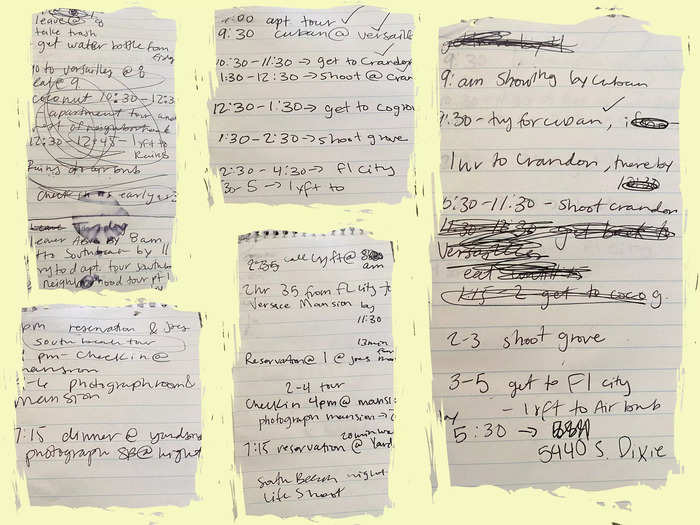 leave @ 8
take trash
- get water bottle from
go to versailles @ 8
eat @ 9
coconut 10:30 - 12:3
apartment tour and
rest of neighborhood
12:30 - 12:45 - lyft to
Ruins
Ruins at air bnb
check in as early
Leave
leave Aero by 8 am
to Southbeach by 11
try to do apt. tour south
neighborhood tour pt 1
:00 apt tour ✓
9:30 cuban @ versaill
10:30-11:30 → get to Crandon
1:30-12:30 → shoot @ Cran
12:30-1:30 → get to cogrov
1:30-2:30 → shoot grove
2:30 - 4:30 → Fl city
3 or 5 → lyft to
9:30
9: am showing by cuban
9:30 - try for cuban,
1 hr to Crandon, there by
5:30-11:30 - shoot crandon
11:30 - 12:30 get back to
versailles
eat
1:15 - 2 get to coco g.
2-3 shoot grove
3-5 get to Fl city
- lyft to Air bnb
5:30 →
5440 S. Dixie
2:35 call lyft @ 8
am
2hr 35 from FL City to
Versace Mansion by
11:30
13 min
Reservation @ 1 @ joes
2-4 tour
Check in 4pm @ mansi
photograph mansion →
20 min
7:15 reservation @ Yard
South Beach night
life shoot
pm reservation @ joes
south beach tour
pm - check in @
mansion
-6 photograph room &
mansion
7:15 dinner @ yardbird
photograph SB @ night